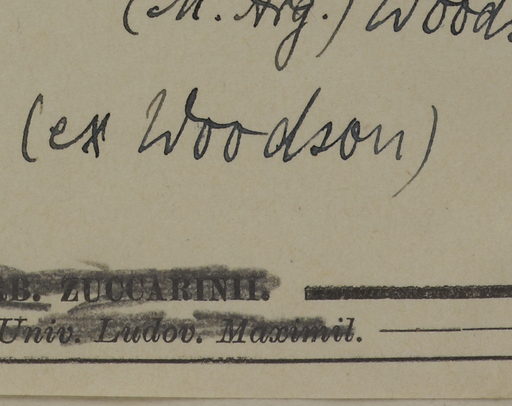 (M. Arg.) Woods
(ex Woodson)
B. ZUCCARINII.
Univ. Ludov. Maximil.